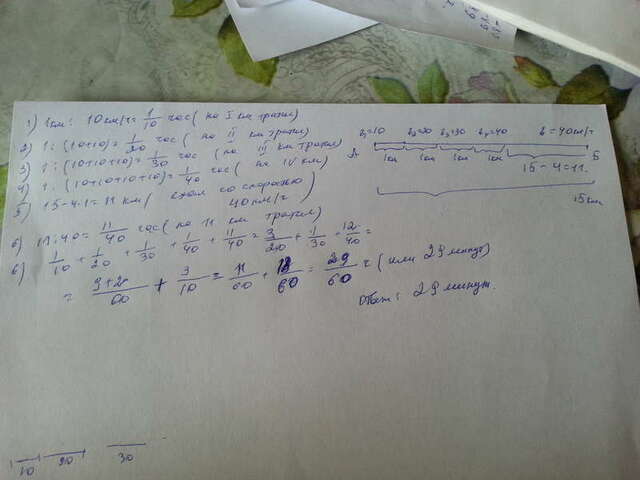 1) 1км : 10км/ч = 1/10 час (на I км тратил)
2) 1 : (10+10) = 1/20 час (на II км тратил)
3) 1 : (10+10+10) = 1/30 час (на III км тратил)
4) 1 : (10+10+10+10) = 1/40 час (на IV км)
5) 15-4·1 = 11 км (ехал со скоростью 40км/ч)
6) 11:40 = 11/40 час (на 11 км тратил)
6) 1/10 + 1/20 + 1/30 + 1/40 + 11/40 = 3/20 + 1/30 + 12/40 =
= 9+2/60 + 3/10 = 11/60 + 18/60 = 29/60 ч (или 29 минут)
Ответ: 29 минут.
v₁=10 v₂=20 v₃=30 v₄=40 v=40км/ч
А Б
1км 1км 1км 1км 15-4=11
15км
10 20 30